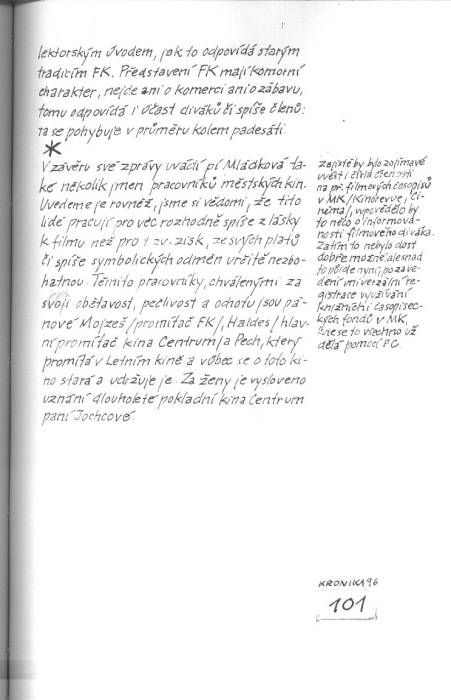 lektorským úvodem, jak to odpovídá starým
tradicím FK. Představení FK mají komorní
charakter, nejde ani o komerci ani o zábavu,
tomu odpovídá i účast diváků či spíše členů:
ta se pohybuje v průměru kolem padesáti.
*
V závěru své zprávy uvádí pí Mládková ta-
ké několik jmen pracovníků městských kin.
Uvedeme je rovněž, jsme si vědomi, že tito
lidé pracují pro věc rozhodně spíše z lásky
k filmu než pro t zv. zisk, ze svých platů
či spíše symbolických odměn určitě nezbo-
hatnou. Těmito pracovníky, chválenými za
svoji obětavost, pečlivost a ochotu jsou pá-
nové Mojzeš /promítač FK/, Haldes /hlav-
ní promítač kina Centrum/a Pech, který
promítá v Letním kině a vůbec se o toto ki-
no stará a udržuje je. Za ženy je vysloveno
uznání dlouholeté pokladní kina Centrum
paní Jochcové.
zajisté by bylo zajímavé
uvést i čísla čtenosti
na př. filmových časopisů
v MK /Kinorevue, Ci-
nema/, vypovědělo by
to něco o informova-
nosti filmového diváka.
Zatím to nebylo dost
dobře možné, ale snad
to půjde nyní, po zave-
dení univerzální re-
gistrace využívání
knižních i časopisec-
kých fondů v MK,
kde se to všechno už
dělá pomocí PC.
KRONIKA 96
101